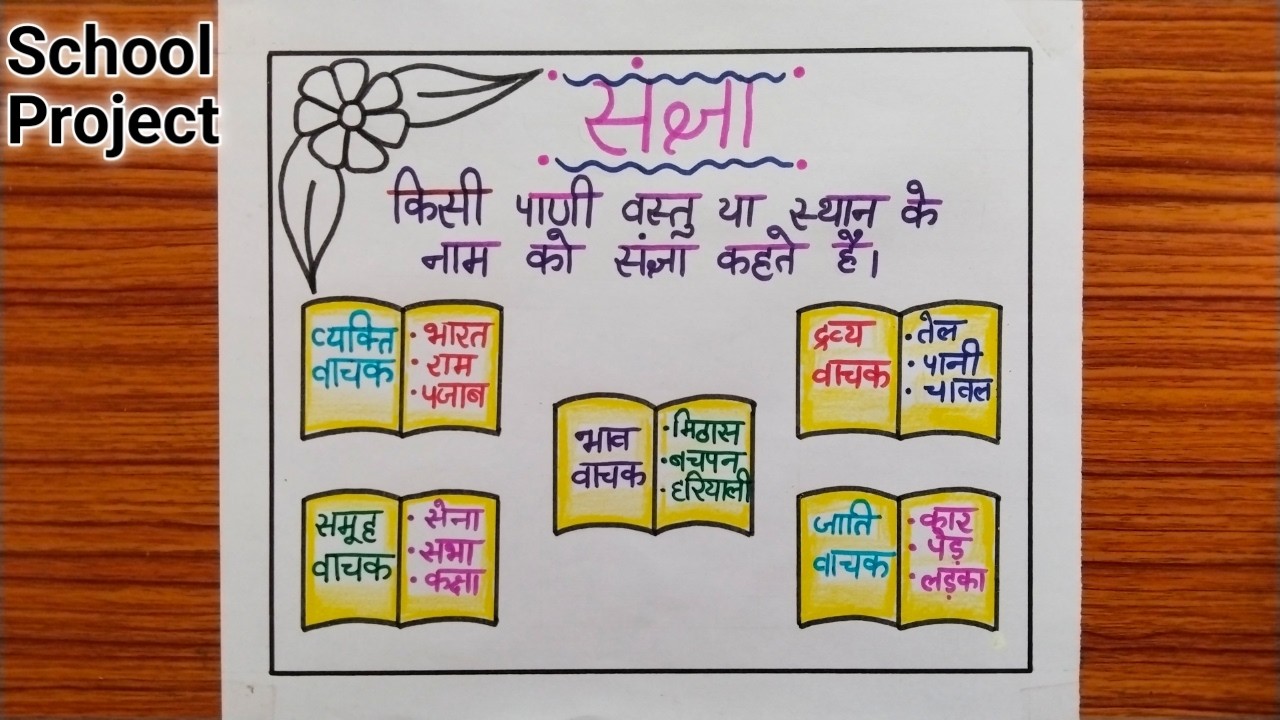 School
Project
संज्ञा
किसी पाणी वस्तु या स्थान के
नाम को संज्ञा कहते हैं।
व्यक्ति
वाचक
• भारत
• राम
• पजाब
द्रव्य
वाचक
• तेल
• पानी
• चावल
भाव
वाचक
• मिठास
• बचपन
• हरियाली
समूह
वाचक
• सेना
• सभा
• कक्षा
जाति
वाचक
• कार
• पेड़
• लड़का